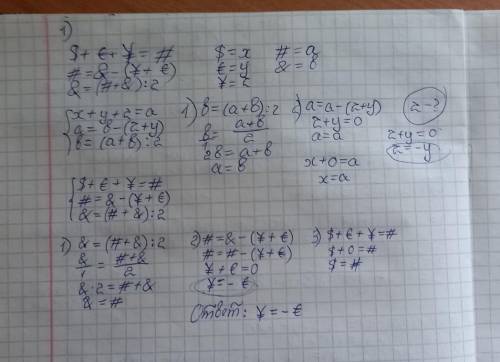 1)
$ + € + ¥ = #
# = & - (¥ + €)
& = (# + &) : 2
$ = x
€ = y
¥ = z
# = a
& = b
x + y + z = a
a = b - (z + y)
b = (a + b) : 2
1) b = (a + b) : 2
b/1 = (a + b)/2
2b = a + b
a = b
2) a = a - (z + y)
z + y = 0
a = a
x + 0 = a
x = a
z - ?
z + y = 0
z = -y
$ + € + ¥ = #
# = & - (¥ + €)
& = (# + &) : 2
1) & = (# + &) : 2
&/1 = (# + &)/2
& · 2 = # + &
& = #
2) # = & - (¥ + €)
# = # - (¥ + €)
¥ + € = 0
¥ = - €
3) $ + € + ¥ = #
$ + 0 = #
$ = #
Ответ: ¥ = - €